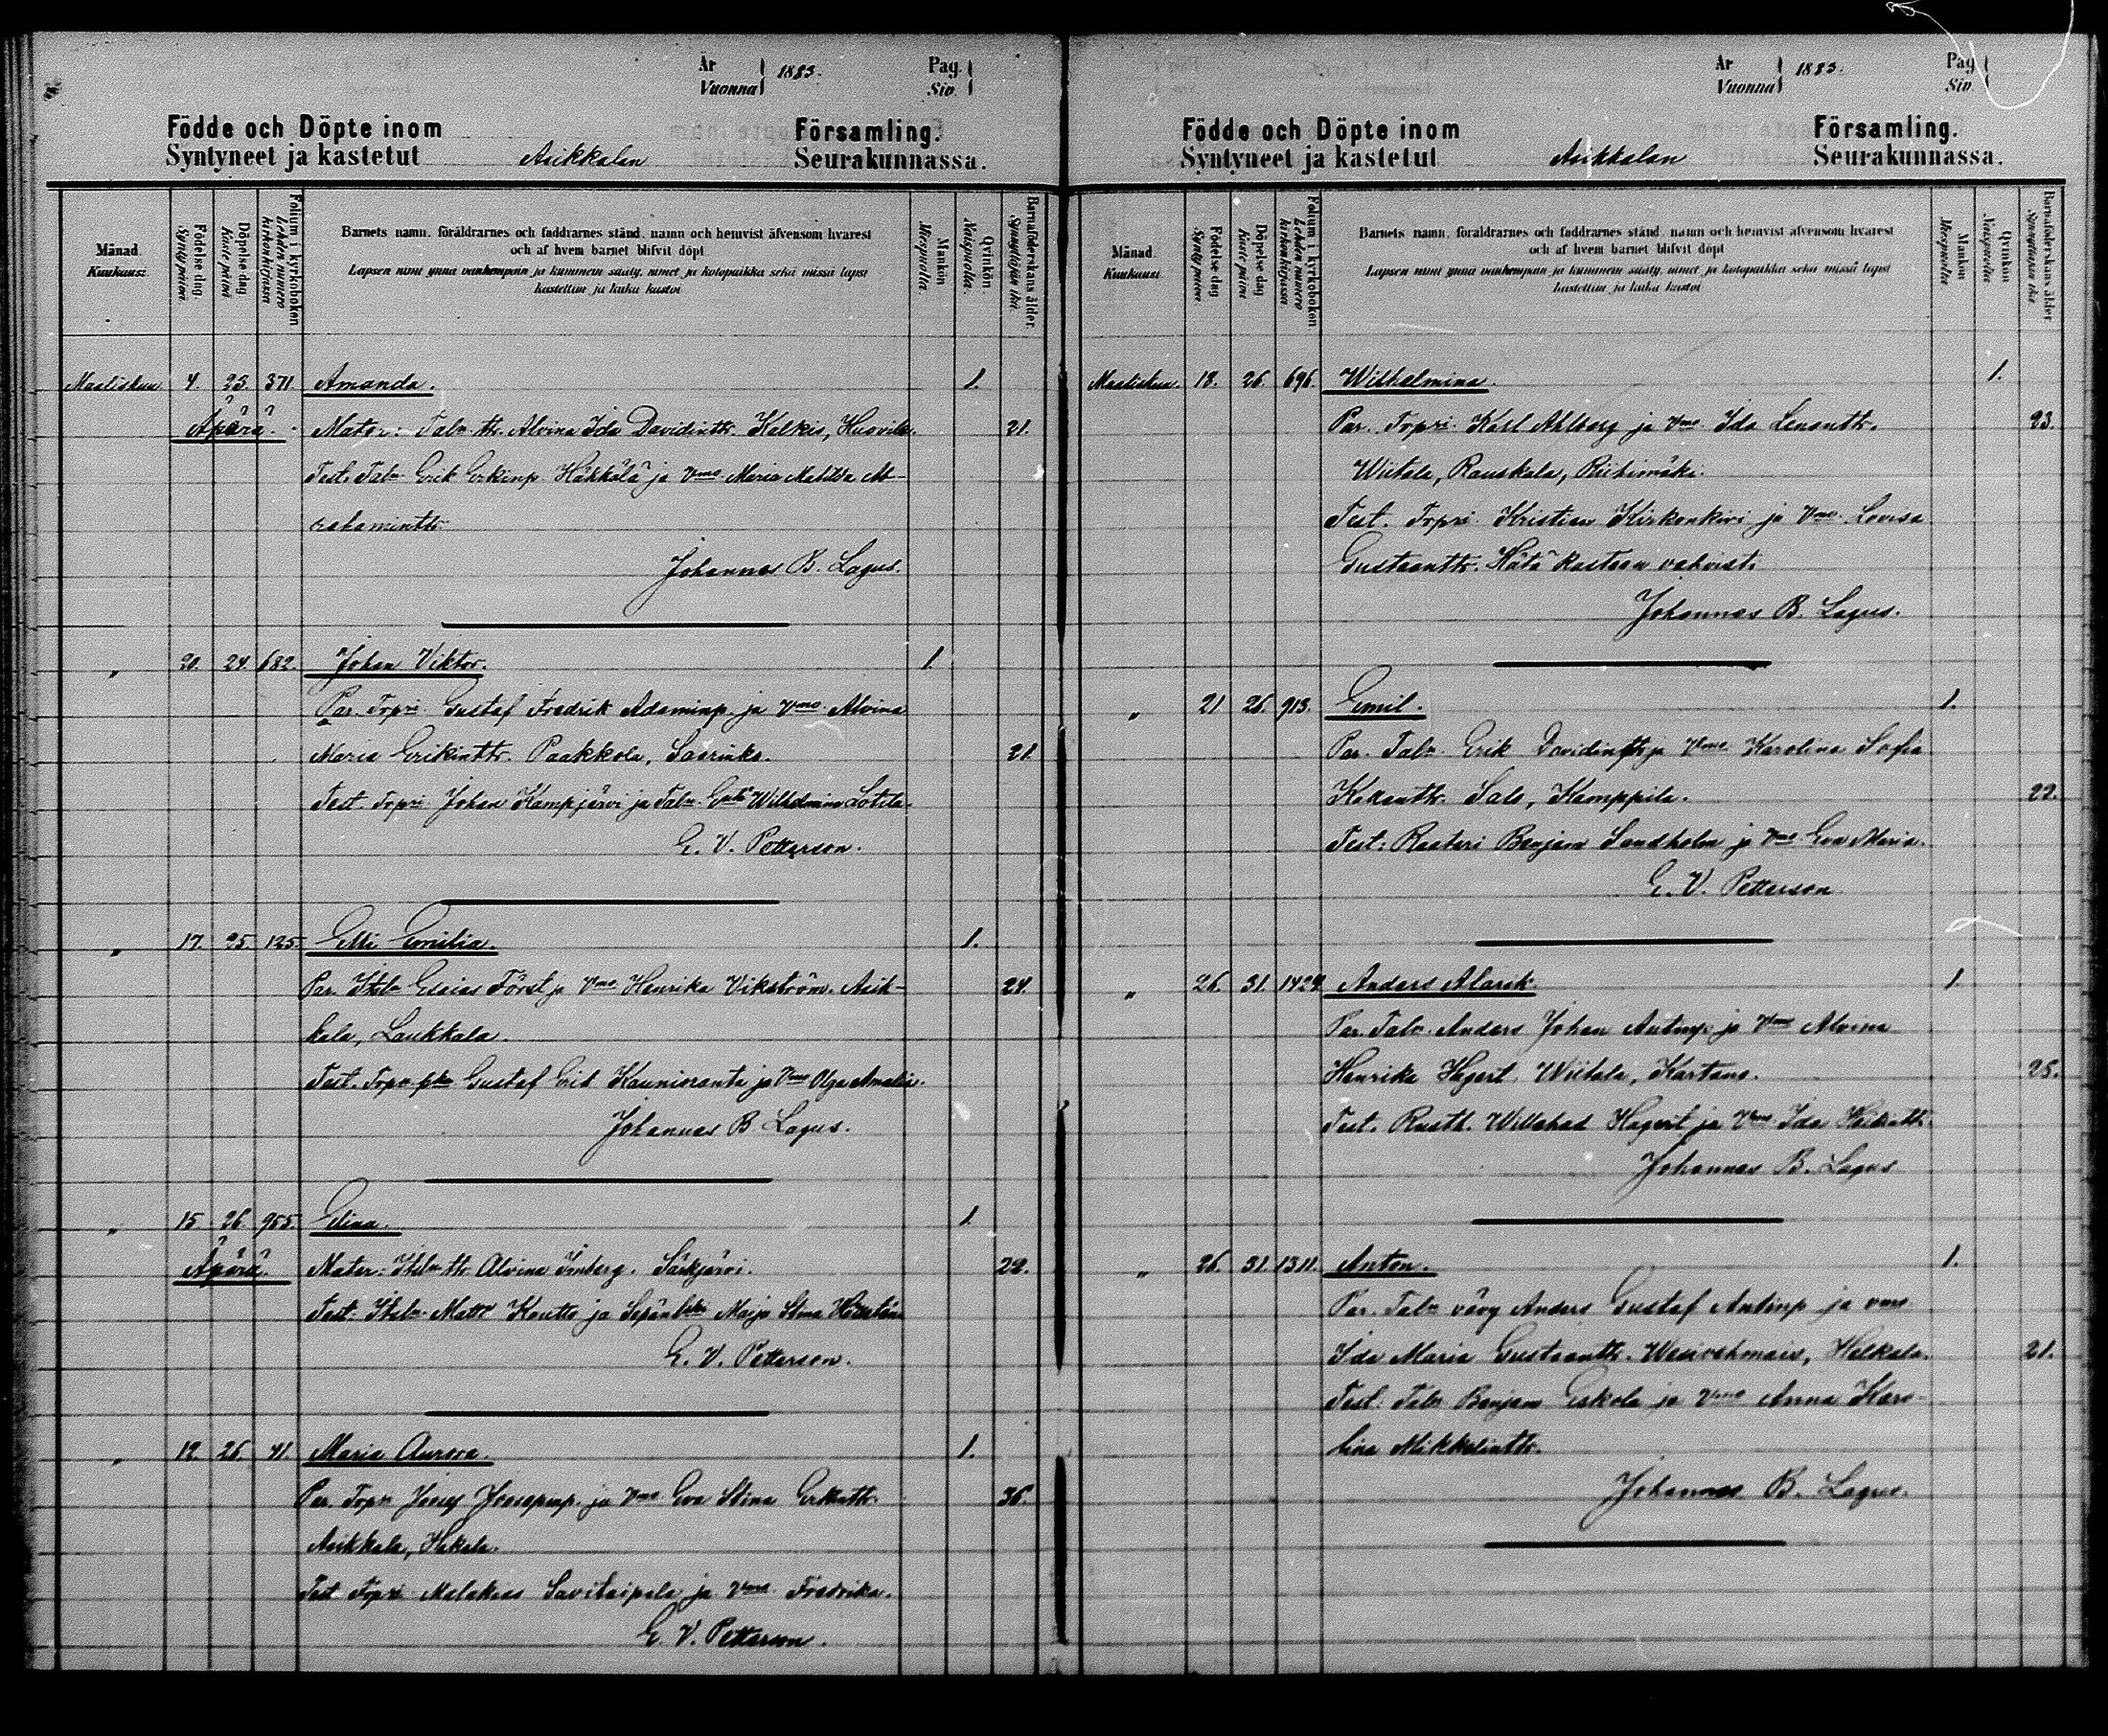 År Vuonna 1883. Pag. Siv.
Födde och Döpte inom Församling.
Syntyneet ja kastetut Asikkalan Seurakunnassa.
Månad. Kuukausi.
Födelse dag Synty päivä.
Döpelse dag Kaste päivä
Folium i kyrkoboken Lehden numero kirkonkirjassa
Barnets namn, föräldrarnes och faddrarnes stånd, namn och hemvist äfvensom hvarest
och af hvem barnet blifvit döpt
Lapsen nimi ynnä vanhempain ja kummein sääty, nimet ja kotopaikka sekä missä lapsi
kastettiin ja kuka kastoi
Mankön Miespuolia.
Qvinkön Naispuolia.
Barnaföderskans ålder. Synnyttäjän ikä.
Maaliskuu 4. 23. 371. Amanda. 1.
Äpärä. Mater: Talr. ttr. Alvina Ida Davidintr. Kalkis, 21.
Test. Talr Erik Erkinp. Häkkälä ja Vmo Maria Matilda Ab-
rahamintr.
Johannes B. Lagus.
" 20. 24. 682. Johan Viktor. 1.
Par. Trpri Gustaf Fredrik Adaminp. ja Vmo Alvina
Maria Erikintr. Paakkola, 21.
Test Trpri Johan Kampjärvi ja Talr Wilhelmina Lotila.
E. V. Petterson.
" 17. 25. 125. Elli Emilia. 1.
Par. Itslr Esaias Först ja Vmo Henrika Vikström. Asik- 24.
kala, Laukkala.
Test. Trpr pka Gustaf Erik Kaunisranta ja Vmo Olga Amalia.
Johannes B. Lagus.
" 15 26. 955. Elina. 1.
Äpärä. Mater: Itslr ttr. Alvina Imberg. Särkjärvi. 22.
Test: Itslr Matts Koutto ja Sepän Maija Stina
E. V. Petterson.
" 12. 26. 41. Maria Aurora. 1.
Par. Trpr Josef Josepinp. ja Vmo Eva Stina Erkintr. 36.
Asikkala, Hakala.
Test Trpri Malakias Savitaipale ja Vmo Fredrika.
E. V. Petterson.
År Vuonna 1883. Pag. Siv.
Födde och Döpte inom Församling.
Syntyneet ja kastetut Asikkalan Seurakunnassa.
Månad. Kuukausi
Födelse dag Synty päivä
Döpelse dag Kaste päivä
Folium i kyrkoboken Lehden numero kirkonkirjassa
Barnets namn, föräldrarnes och faddrarnes stånd, namn och hemvist äfvensom hvarest
och af hvem barnet blifvit döpt
Lapsen nimi ynnä vanhempain ja kummein sääty, nimet ja kotopaikka sekä missä lapsi
kastettiin ja kuka kastoi
Mankön Miespuolia
Qvinkön Naispuolia
Barnaföderskans ålder. Synnyttäjän ikä
Maaliskuu. 18. 26. 696. Wilhelmina. 1.
Par. Trpri Karl Ahlberg ja Vmo Ida Lenantr. 23.
Wiitala, Rauskala, Riihimäki.
Test. Trpri Kristian Kirkonkivi ja Vmo Lovisa
Gustaantr. Hätä kasteen vahvist.
Johannes B. Lagus.
" 21. 26. 913. Emil. 1.
Par. Talr Erik ja Vmo Karolina Sofia
Salo, Kamppila. 22.
Test: Raatari Benjam Sandholm ja Vmo Eva Maria.
E. V. Petterson
" 26. 31. 1424. Anders Alarik. 1
Par. Talr. Anders Johan Antinp. ja Vmo Alvina
Henrika Hagert. Wiitala, Kartano. 25.
Test. Rusth. Willehad Hagert ja Vmo Ida
Johannes B. Lagus
" 26. 31. 1311. Anton. 1.
Par. Talr vävy Anders Gustaf Antinp ja vmo
Ida Maria Gustaantr. Wesivehmais, Helkala. 21.
Test: Talr Benjam Eskola ja Vmo Anna Karo-
lina Mikkelintr.
Johannes B. Lagus.